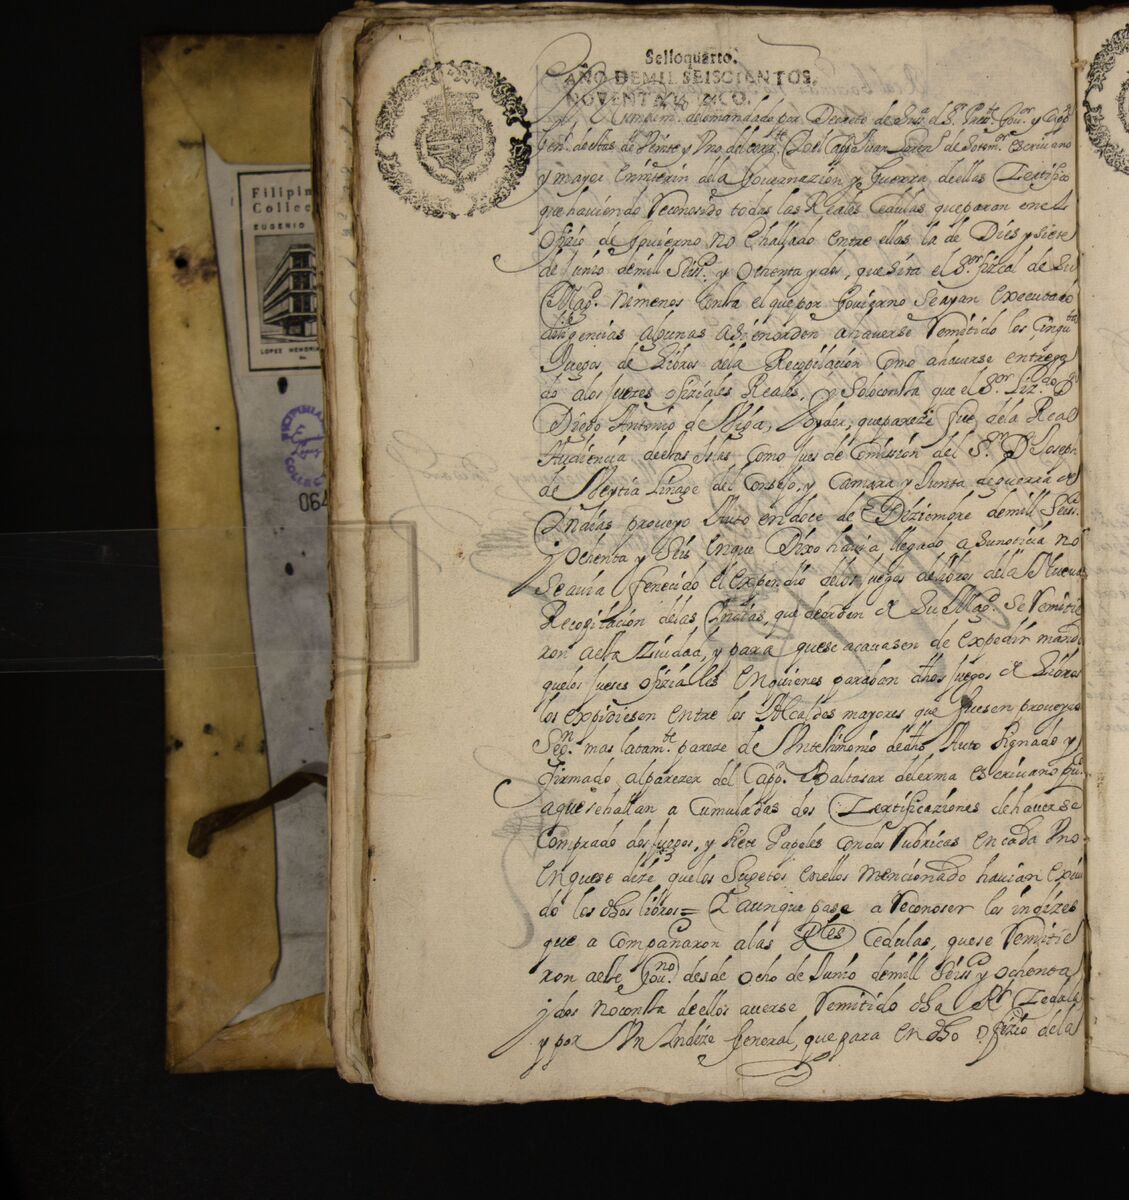 Selloquarto.
AÑO DEMIL SEISCIENTOS,
NOVENTA Y CINCO.
Filipin
Collec
EUGENIO
LOPEZ MEMORI
En Cumplim.to delo mandado por Decreto de su s.a el S.r Press.te Gou.or y Cap.n
Gen.l destas de Veinte y Uno del corr.te Yo el Capp.n Juan de Sotom.r escriuano
y mayor dela Gouernazion y Guerra deellas Zertifico
que hauiendo Reconosido todas las Reales Cedulas queparan eneste
Ofizio de Gouierno no E hallado entre ellas la de Dies y siete
de Junio demill Seis.s y Ochenta y dos, que sita el S.or fizcal de Su
Mag.d ni menos Consta el que por Gouierno Se ayan executado
diligencias algunas asi enorden a hauerse Remitido los Cinqu.ta
Juegos de Libros dela Recopilacion Como a hauerse entrega
do alos Jueses ofiziales Reales, y Solo consta que el S.or Liz.do D.n
Diego Antonio de Viga, Oydor, queparese fue dela Real
Audiencia destas Islas Como Jues de Comision del S.r D.n Joseph
de Veytia Linage del Consejo, y Camara y Junta deguerra de
Indias proueyo Auto endose de Diziembre demill Seis.s
y Ochenta y Seis enque Dixo hauia llegado a Sunoticia no
Seauia fenecido el expendio delos juegos delibros dela Nueua
Recopilacion delas Indias, que deorden de Su Mag.d Se Remitie
ron aesta Ziudad, y para quese acauasen de expedir mando
quelos Jueses ofiziales enquienes parauan dhos Juegos de Libros
los expidiesen entre los Alcaldes mayores que fuesen proueydos
Seg.n mas latam.te pareze de Untestimonio dedho Auto Signado y
firmado alparezer del Capp.n Baltasar delerma escriuano pu.co
aquesehallan a Cumuladas dos Zertificaziones dehauerse
Comprado dos Juegos, y Siete Papeles Condos Rubricas encada Uno
enquese dize quelos Sugetos enellos mencionado hauian exiui
do los dhos libros = Y aunque pase a Reconoser los indizes
que a Compañaron alas R.les Cedulas, quese Remitie
ron aeste Gou.no desde Ocho de Junio demill Seis.s y Ochenta
y dos noconsta deellos auerse Remitido dha R.l Zedula
y por Un Indize General, que para en dho ofizio dela